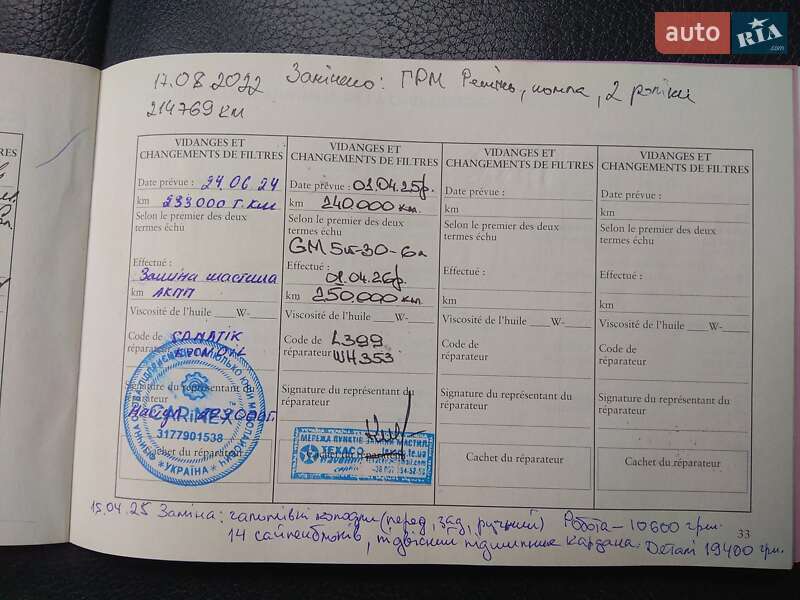 auto RIA.com
17.08.2022 Замінено: ГРМ Ремінь, помпа, 2 роліки
214769 км
VIDANGES ET CHANGEMENTS DE FILTRES
Date prévue : 24.06.24
km 233000 т.км
Selon le premier des deux termes échu
Effectué :
Заміна мастила
km АКПП
Viscosité de l'huile ___W-___
Code de réparateur
Signature du représentant du réparateur
3177901538
УКРАЇНА
Cachet du réparateur
VIDANGES ET CHANGEMENTS DE FILTRES
Date prévue : 01.04.25р.
km 240.000 км
Selon le premier des deux termes échu
GM 5w-30-6л
Effectué :
01.04.26р.
km 250.000 км
Viscosité de l'huile ___W-___
Code de réparateur L399
WH353
Signature du représentant du réparateur
МЕРЕЖА ПУНКТІВ ЗАМІНИ МАСТИЛ
TEXACO
VIDANGES ET CHANGEMENTS DE FILTRES
Date prévue :
km
Selon le premier des deux termes échu
Effectué :
km
Viscosité de l'huile ___W-___
Code de réparateur
Signature du représentant du réparateur
Cachet du réparateur
VIDANGES ET CHANGEMENTS DE FILTRES
Date prévue :
km
Selon le premier des deux termes échu
Effectué :
km
Viscosité de l'huile ___W-___
Code de réparateur
Signature du représentant du réparateur
Cachet du réparateur
33
15.04.25 Заміна: гальмівні колодки (перед, зад, ручний) Робота – 10600 грн.
14 сайлентблоків, підвісний підшипник кардана. Деталі 19400 грн.